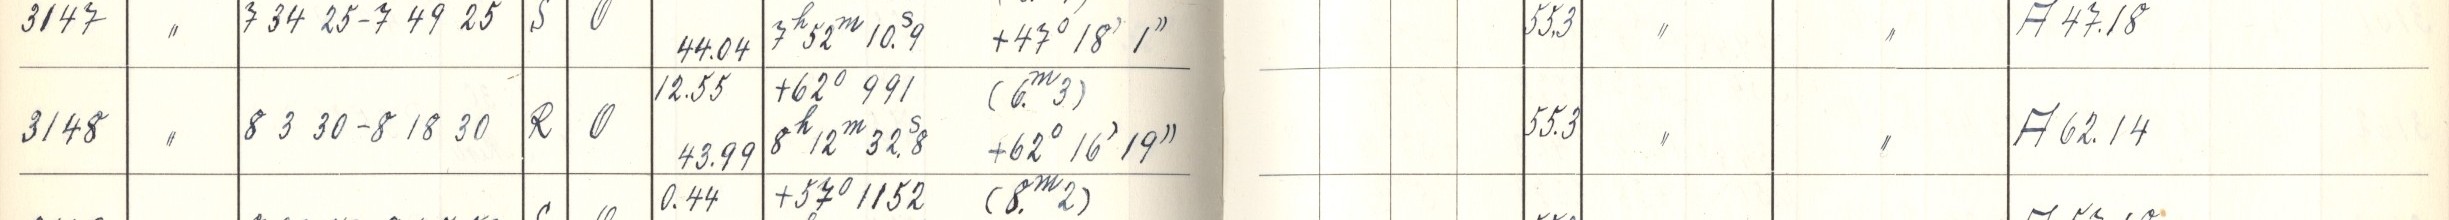 3147 " 7 34 25-7 49 25 S O 44.04 7h 52m 10.s9 +47° 18' 1" 55.3 " " A 47.18
12.55 +62° 991 (6.m3)
3148 " 8 3 30-8 18 30 R O 43.99 8h 12m 32.s8 +62° 16' 19" 55.3 " " A 62.14
0.44 +57° 1152 (8.m2)